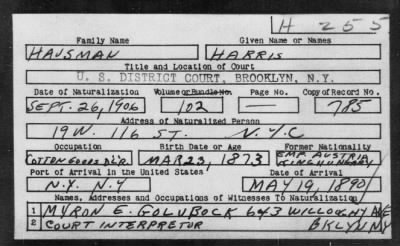 H 255
Family Name Given Name or Names
HAUSMAN HARRIS
Title and Location of Court
U. S. DISTRICT COURT, BROOKLYN, N.Y.
Date of Naturalization Volume or Bundle No. Page No. Copy of Record No.
SEPT. 26, 1906 102 — 785
Address of Naturalized Person
19 W. 116 ST. N.Y.C
Occupation Birth Date or Age Former Nationality
COTTON GOODS DL'R. MAR 23, 1873 EMP. AUSTRIA, KING HUNGARY
Port of Arrival in the United States Date of Arrival
N.Y. N.Y MAY 19, 1890
Names, Addresses and Occupations of Witnesses To Naturalization
1 MYRON E. GOLUBOCK 643 WILLOUGHBY AVE
2 COURT INTERPRETOR BKLYN NY